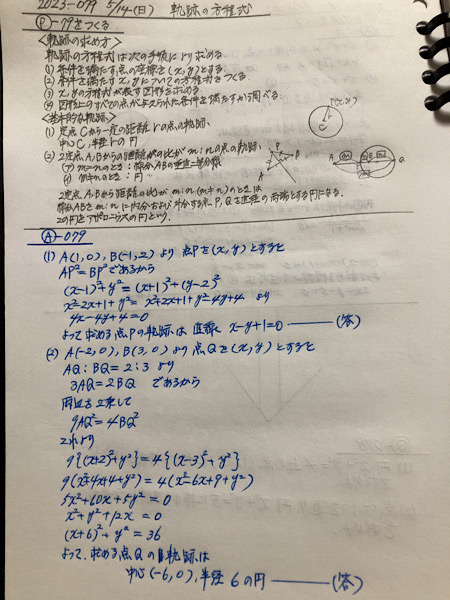 2023-079 5/14(日) 軌跡の方程式
Ⓟ-79をつくる
<軌跡の求め方>
軌跡の方程式は次の手順により求める.
(1) 条件を満たす点の座標を(x,y)とする
(2) 条件を満たすx,yについての方程式をつくる
(3) x,yの方程式が表す図形を求める
(4) 図形上のすべての点が与えられた条件を満たすか調べる.
<基本的な軌跡>
(1) 定点Cから一定の距離rの点の軌跡.
中心C,半径rの円
P(x,y)
r
C
(2) 2定点A,Bからの距離の比がm:nの点の軌跡.
(ア) m=nのとき:線分ABの垂直二等分線
(イ) m≠nのとき:円
P
A
B
A
P
B
Q
2定点A,Bから距離の比がm:n(m≠n)のときは
線分ABをm:nに内分および外分する点P,Qを直径の両端とする円になる.
この円をアポロニウスの円という.
Ⓐ-079
(1) A(1,0), B(-1,2)より 点Pを(x,y)とすると
AP²=BP²であるから
(x-1)²+y²=(x+1)²+(y-2)²
x²-2x+1+y²=x²+2x+1+y²-4y+4 より
4x-4y+4=0
よって求める点Pの軌跡は 直線 x-y+1=0 ——(答)
(2) A(-2,0), B(3,0)より 点Qを(x,y)とすると
AQ:BQ=2:3 より
3AQ=2BQ であるから
両辺を2乗して
9AQ²=4BQ²
これより
9{(x+2)²+y²}=4{(x-3)²+y²}
9(x²+4x+4+y²)=4(x²-6x+9+y²)
5x²+60x+5y²=0
x²+y²+12x=0
(x+6)²+y²=36
よって,求める点Qの軌跡は
中心(-6,0),半径6の円 ——(答)